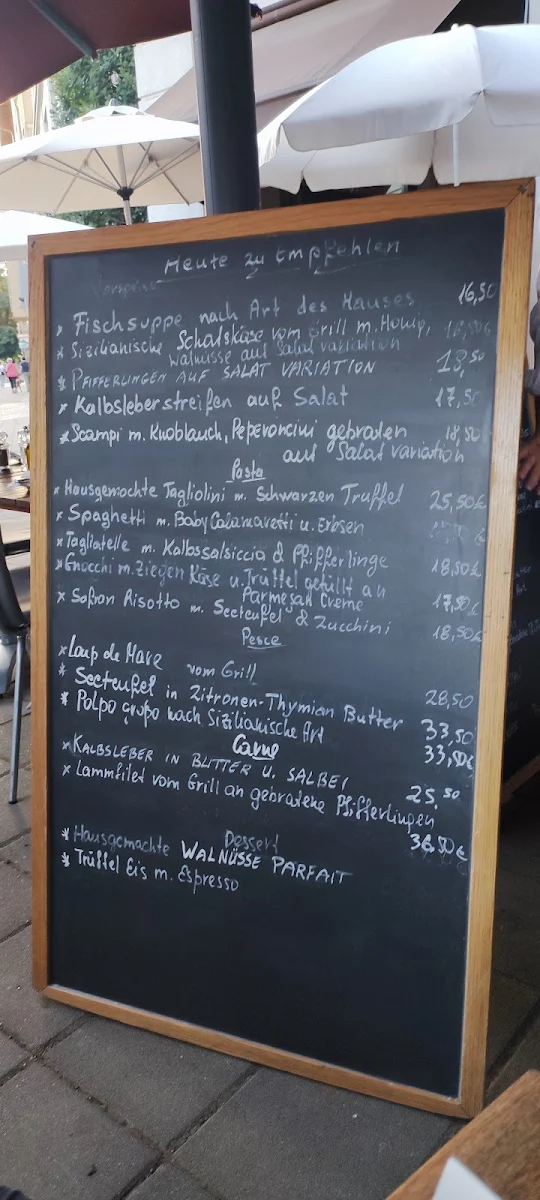 Heute zu Empfehlen
Vorspeise
* Fischsuppe nach Art des Hauses 16,50
* Sizilianische Schafskäse vom Grill m. Honig,
Walnüsse auf Salat variation
* PFIFFERLINGEN AUF SALAT VARIATION 18,50
* Kalbsleberstreifen auf Salat 17,50
* Scampi m. Knoblauch, Peperoncini gebraten 18,50
auf Salat variation
Pasta
* Hausgemachte Tagliolini m. Schwarzen Trüffel 25,50€
* Spaghetti m. Baby Calamaretti u. Erbsen
* Tagliatelle m. Kalbssalsiccia & Pfifferlinge 18,50€
* Gnocchi m. Ziegen Käse u. Trüffel gefüllt an
Parmesan Creme 17,50€
* Safran Risotto m. Seeteufel & Zucchini 18,50€
Pesce
* Loup de Mare vom Grill 28,50
* Seeteufel in Zitronen-Thymian Butter 33,50
* Polpo nach Sizilianische Art 33,50€
Carne
* KALBSLEBER IN BUTTER U. SALBEI 25,50
* Lammfilet vom Grill an gebratene Pfifferlingen
36,50€
Dessert
* Hausgemachte WALNÜSSE PARFAIT
* Trüffel Eis m. Espresso